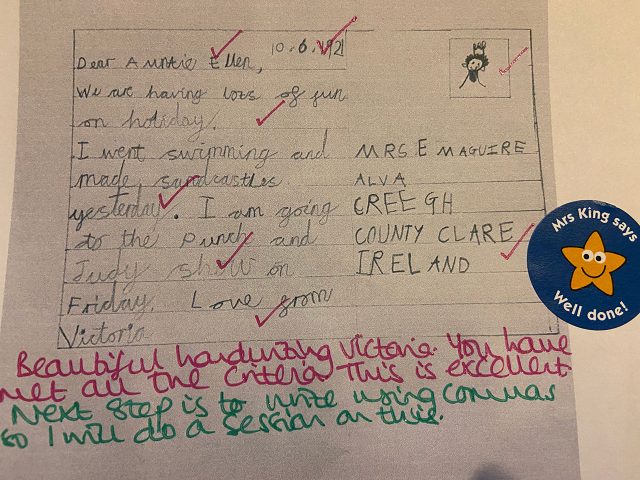 10.6.1921
Dear Auntie Ellen,
We are having lots of fun
on holiday.
I went swimming and
made sandcastles
yesterday. I am going
to the Punch and
Judy show on
Friday. Love from
Victoria
MRS E MAGUIRE
ALVA
CREEGH
COUNTY CLARE
IRELAND
Mrs King says
Well done!
Beautiful handwriting Victoria. You have
met all the criteria. This is excellent.
Next step is to write using commas
so I will do a session on this.